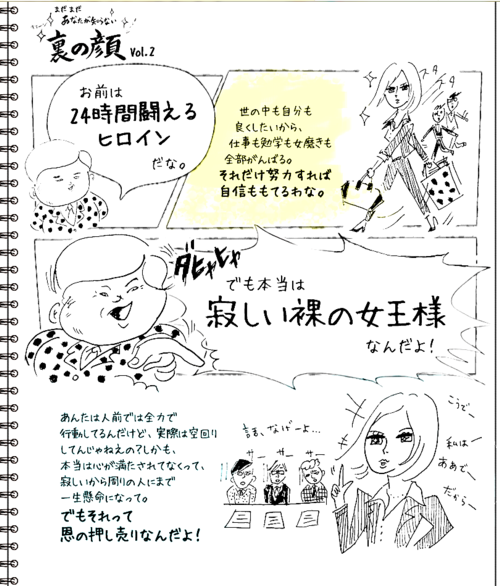 まだまだ
あなたが知らない
裏の顔 Vol.2
お前は
24時間闘える
ヒロイン
だな。
世の中も自分も
良くしたいから、
仕事も勉学も女磨きも
全部がんばる。
それだけ努力すれば
自信ももてるわな。
スタ
スタ
ダヒャヒャ
でも本当は
寂しい裸の女王様
なんだよ!
あんたは人前では全力で
行動してるんだけど、実際は空回り
してんじゃねえの?しかも、
本当は心が満たされてなくって、
寂しいから周りの人にまで
一生懸命になって。
でもそれって
恩の押し売りなんだよ!
話、なげーよ…
サー
サー
サー
こうで、
私は
ああで、
だからー